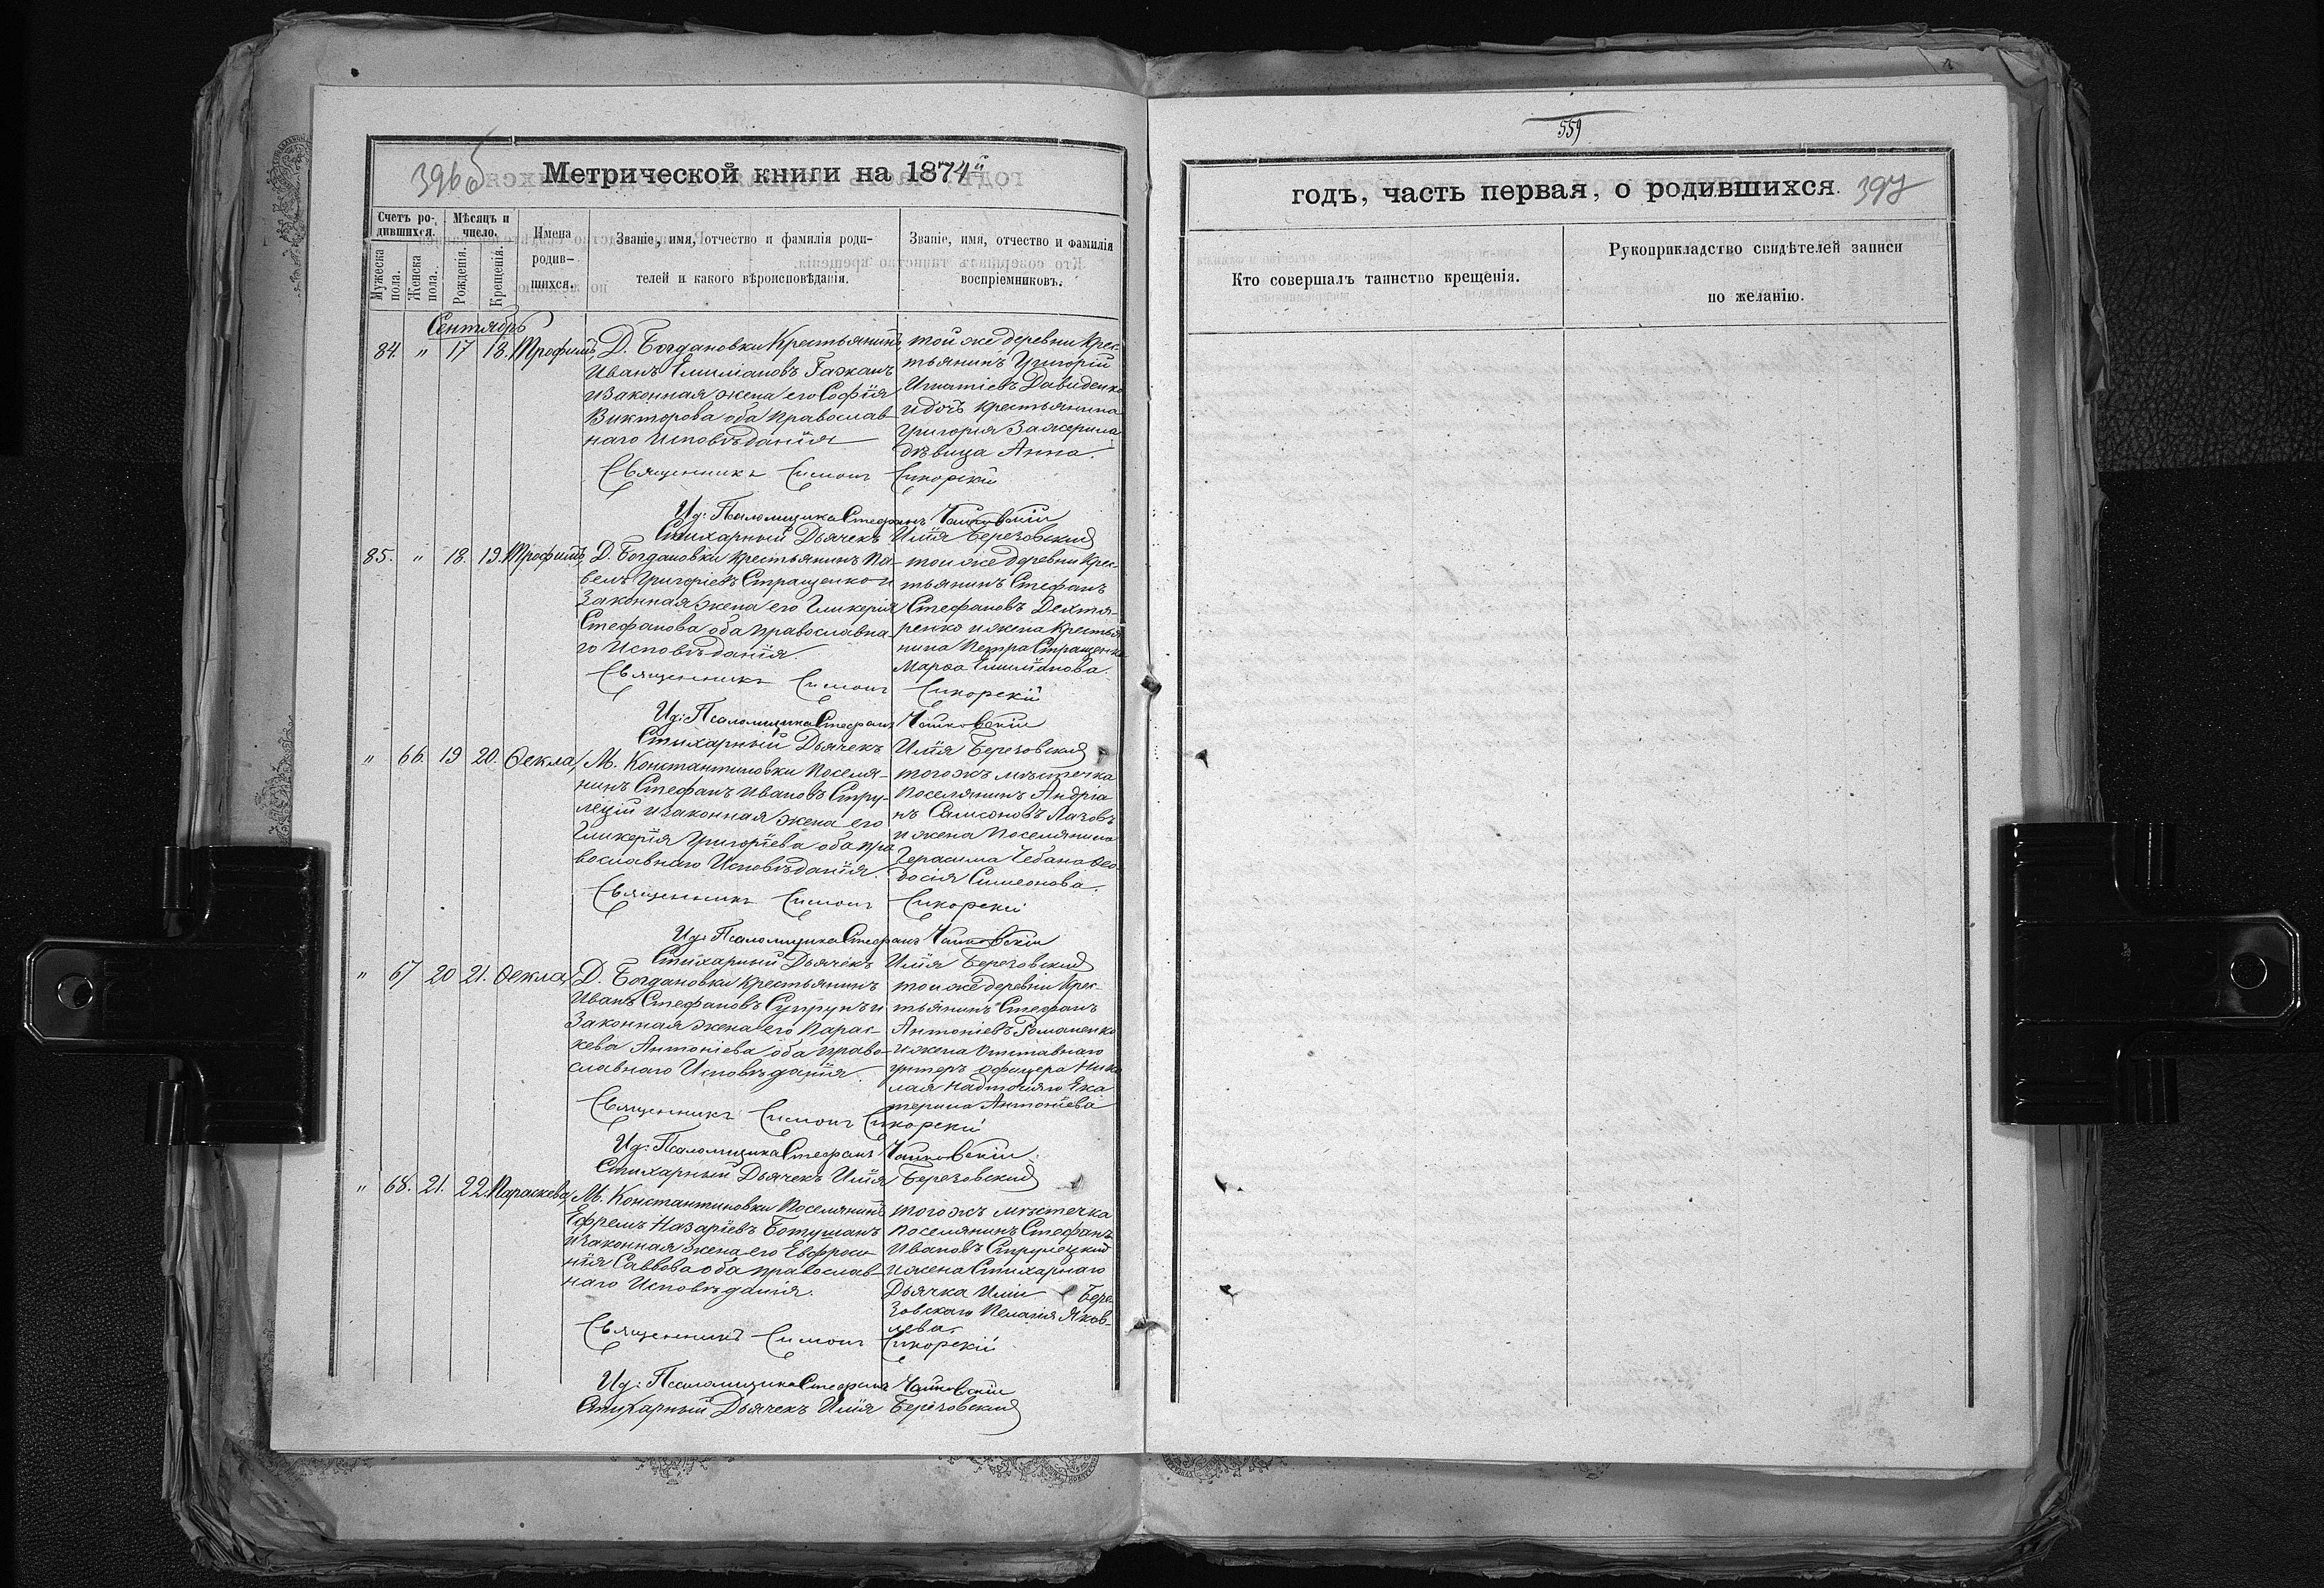 396 об
Метрической книги на 1874й
Счетъ ро-
дившихся.
Мѣсяцъ и
число.
Имена
родив-
шихся.
Званіе, имя, отчество и фамилія роди-
телей и какого вѣроисповѣданія.
Званіе, имя, отчество и фамилія
воспріемниковъ.
Мужеска
пола.
Женска
пола.
Рожденія.
Крещенія.
Сентябрь
84. " 17 18. Трофимъ, Д. Богдановки Крестьянинъ
Иванъ Емиліановъ Гажанъ
и законная жена его Софія
Викторова оба православ-
наго Исповѣданія
той же деревни Крес-
тьянинъ Григорій
Игнатіевъ Давиденко
и дочь крестьянина
Григорія
дѣвица Анна.
Священникъ Симонъ Сикорскій
Ид: Псаломщика Стефанъ Чайковскій
Стихарный Дьячекъ Илія Березовскій
85. " 18. 19. Трофимъ, Д. Богдановки Крестьянинъ Па-
велъ Григоріевъ Стращенко и
Законная жена его Гликерія
Стефанова оба православна-
го Исповѣданія.
той же деревни Крес-
тьянинъ Стефанъ
Стефановъ Дехтя-
ренко и жена Крестья
нина Петра Стращенка
Марѳа Емиліанова.
Священникъ Симонъ Сикорскій
Ид: Псаломщика Стефанъ Чайковскій
Стихарный Дьячекъ Илія Березовскій
" 66. 19 20. Ѳекла, М. Константиновки Поселя-
нинъ Стефанъ Ивановъ Стру-
лецій и законная жена его
Гликерія Григоріева оба пра
вославнаго Исповѣданія.
того жъ мѣстечка
Поселянинъ Андріа
нъ Самсоновъ Лазовъ
и жена Поселянина
Герасима Чебана Ѳео-
досія Симеонова.
Священникъ Симонъ Сикорскій
Ид: Псаломщика Стефанъ Чайковскій
Стихарный Дьячекъ Илія Березовскій
" 67 20 21. Ѳекла, Д. Богдановки Крестьянинъ
Иванъ Стефановъ Супрунъ и
Законная жена его Парас-
кева Антоніева оба право-
славнаго Исповѣданія.
той же деревни Крес-
тьянинъ Стефанъ
Антоніевъ Романенко
и жена отставнаго
унтеръ офицера Нико
лая Надточаго Ека
терина Антоніева
Священникъ Симонъ Сикорскій
Ид: Псаломщика Стефанъ Чайковскій.
Стихарный Дьячекъ Илія Березовскій
" 68. 21. 22. Параскева, М. Константиновки Поселянинъ
Ефремъ Назаріевъ Ботушанъ
и законная жена его Евфроси
нія Саввова оба православ-
наго Исповѣданія.
того жъ мѣстечка
поселянинъ Стефанъ
Ивановъ Струлецкій
и жена Стихарнаго
Дьячка Иліи Бере-
зовскаго Пелагія Яков-
лева.
Священникъ Симонъ Сикорскій
Ид: Псаломщика Стефанъ Чайковскій
Стихарный Дьячекъ Илія Березовскій
559
годъ, часть первая, о родившихся. 397
Кто совершалъ таинство крещенія.
Рукоприкладство свидѣтелей записи
по желанію.